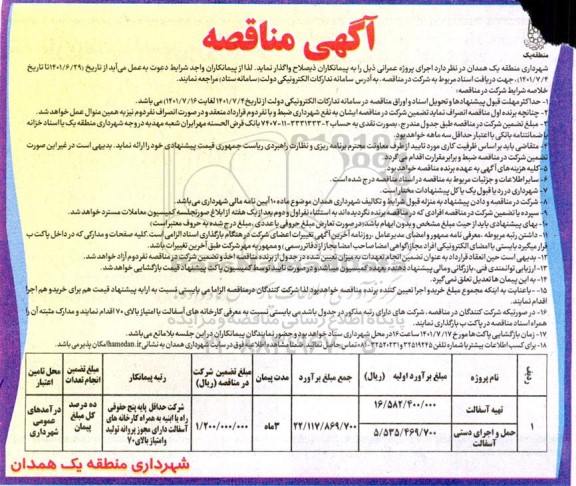 آگهی مناقصه
منطقه یک
شهرداری منطقه یک همدان در نظر دارد اجرای پروژه عمرانی ذیل را به پیمانکاران ذیصلاح واگذار نماید. لذا از پیمانکاران واجد شرایط دعوت به عمل می‌آید از تاریخ (۱۴۰۱/۶/۲۹ تا تاریخ
۱۴۰۱/۷/۴)، جهت دریافت اسناد مربوط به شرکت در مناقصه، به آدرس سامانه تدارکات الکترونیکی دولت (سامانه ستاد) مراجعه نمایند.
خلاصه شرایط شرکت در مناقصه:
۱- حداکثر مهلت قبول پیشنهادها و تحویل اسناد و اوراق مناقصه در سامانه تدارکات الکترونیکی دولت از تاریخ ۱۴۰۱/۷/۴ لغایت ۱۴۰۱/۷/۱۶ می باشد.
۲- چنانچه برنده اول مناقصه انصراف نماید، تضمین شرکت در مناقصه ایشان به نفع شهرداری ضبط و با نفر دوم قرارداد منعقد و در صورت انصراف نفر دوم نیز به همین منوال عمل خواهد شد.
۳- مبلغ تضمین شرکت در مناقصه طبق جدول مندرج، بصورت نقدی به حساب
بانک قرض الحسنه مهر ایران شعبه مهدیه در وجه شهرداری منطقه یک یا اسناد خزانه
یا ضمانتنامه بانکی با اعتبار حداقل سه ماهه خواهد بود.
۴- متقاضی باید بر اساس ظرفیت کاری مورد تایید از طرف معاونت محترم برنامه ریزی و نظارت راهبردی ریاست جمهوری قیمت پیشنهادی خود را ارائه نماید. بدیهی است در غیر این صورت
تضمین شرکت در مناقصه ضبط و برابر مقررات اقدام می گردد.
۵- کلیه هزینه های آگهی به عهده برنده مناقصه خواهد بود.
۶- سایر اطلاعات و جزئیات مربوط به مناقصه در اسناد مناقصه درج شده است.
۷- شهرداری در رد یا قبول یک یا کل پیشنهادات مختار است.
۸- شرکت در مناقصه و دادن پیشنهاد به منزله قبول شرایط و تکالیف شهرداری همدان موضوع ماده ۱۰ آیین نامه مالی شهرداری می باشد.
۹- سپرده یا تضمین شرکت در مناقصه افرادی که در مناقصه برنده نگردیده اند به استثناء نفر اول و دوم بعد از یک هفته از ابلاغ صورتجلسه کمیسیون معاملات مسترد خواهد شد.
۱۰- بهای پیشنهادی باید از حیث مبلغ مشخص و بدون ابهام باشد (در صورت تعارض مبلغ حروفی با عددی، مبلغ درج شده به حروف معتبر است)
۱۱- داشتن رتبه مربوطه، معرفی نامه ممهور و امضای مدیرعامل، روزنامه آخرین آگهی تغییرات اعضای شرکت در هنگام بارگذاری اسناد الزامی است. کلیه صفحات و مدارکی که در داخل پاکت ب
قرار میگیرد بایستی با امضای الکترونیکی افراد مجاز (گواهی امضا صاحب امضا مجاز از دفاتر رسمی) و ممهور به مهر شرکت طبق آخرین تغییرات باشد.
۱۲- بدیهی است حین انعقاد قرارداد به عنوان تضمین انجام تعهدات به میزان تعیین شده در جدول از برنده مناقصه اخذ و تضمین شرکت در مناقصه نفر دوم آزاد خواهد شد.
۱۳- ارزیابی توانمندی فنی، بازرگانی و مالی پیشنهاد دهنده بعهده کمیسیون میباشد و در صورت تایید توسط کمیسیون پاکت پیشنهاد قیمت بازگشایی خواهد شد.
۱۴- به این پیمان ها تعدیل تعلق نمی گیرد.
۱۵- باعنایت به اینکه مجموع مبلغ خرید و اجرا تعیین کننده برنده مناقصه خواهد بود لذا شرکت کنندگان در مناقصه الزاما می بایستی نسبت به ارایه پیشنهاد قیمت هم برای خرید و هم اجرا
اقدام نمایند.
۱۶- در صورتیکه شرکت کنندگان در مناقصه، شرکت های دارای رتبه مذکور در جدول باشد می بایستی نسبت به معرفی کارخانه های آسفالت با امتیاز بالای ۷۰ اقدام نمایند و مدارک مثبته آن را
همراه اسناد مناقصه در پاکت ب بارگذاری نمایند.
۱۷- زمان بازگشایی پاکت ها مورخ ۱۴۰۱/۷/۱۷ ساعت ۱۶ در محل شهرداری ستاد خواهد بود و حضور نمایندگان پیمانکاران در این جلسه بلامانع می باشد.
۱۸- برای کسب اطلاعات بیشتر با شماره تلفن
حاصل نمائید. ضمنا مشاهده اطلاعات فوق در سایت شهرداری همدان به نشانی hamedan.ir امکان پذیر می باشد.
ردیف نام پروژه مبلغ برآورد اولیه (ریال) جمع مبلغ برآورد مدت پیمان مبلغ تضمین شرکت در مناقصه (ریال) رتبه پیمانکار مبلغ تضمین انجام تعهدات محل تامین اعتبار
۱ تهیه آسفالت ۱۶/۵۸۲/۴۰۰/۰۰۰ ۲۲/۱۱۷/۸۶۹/۷۰۰ ۳ ماه ۱/۲۰۰/۰۰۰/۰۰۰ شرکت حداقل پایه پنج حقوقی راه یا ابنیه به همراه کارخانه های آسفالت دارای مجوز پروانه تولید و امتیاز بالای ۷۰ ده درصد کل مبلغ پیمان درآمدهای عمومی شهرداری
حمل و اجرای دستی آسفالت ۵/۵۳۵/۴۶۹/۷۰۰
شهرداری منطقه یک همدان